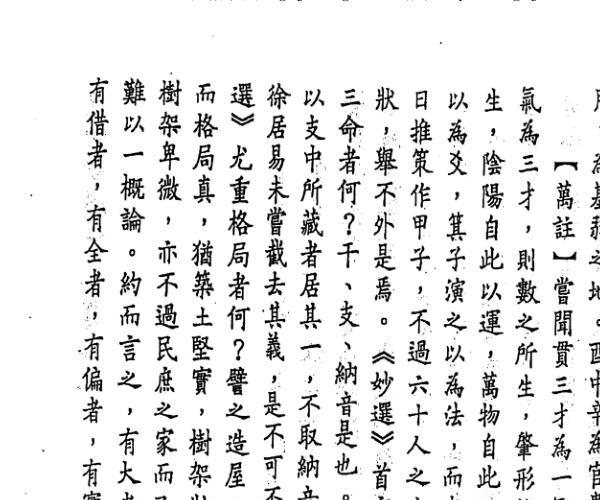 為基
之地。酉中辛為官
【萬註】嘗聞貫三才為一
氣為三才，則數之所生，肇形
生，陰陽自此以運，萬物自此
以為爻，箕子演之以為法，而
日推策作甲子，不過六十人之
狀，舉不外是焉。《妙選》首
三命者何？干、支、納音是也。
以支中所藏者居其一，不取納音
徐居易未嘗截去其義，是不可不
選》尤重格局者何？譬之造屋
而格局真，猶築土堅實，樹架
樹架卑微，亦不過民庶之家而
難以一概論。約而言之，有大
有借者，有全者，有偏者，有